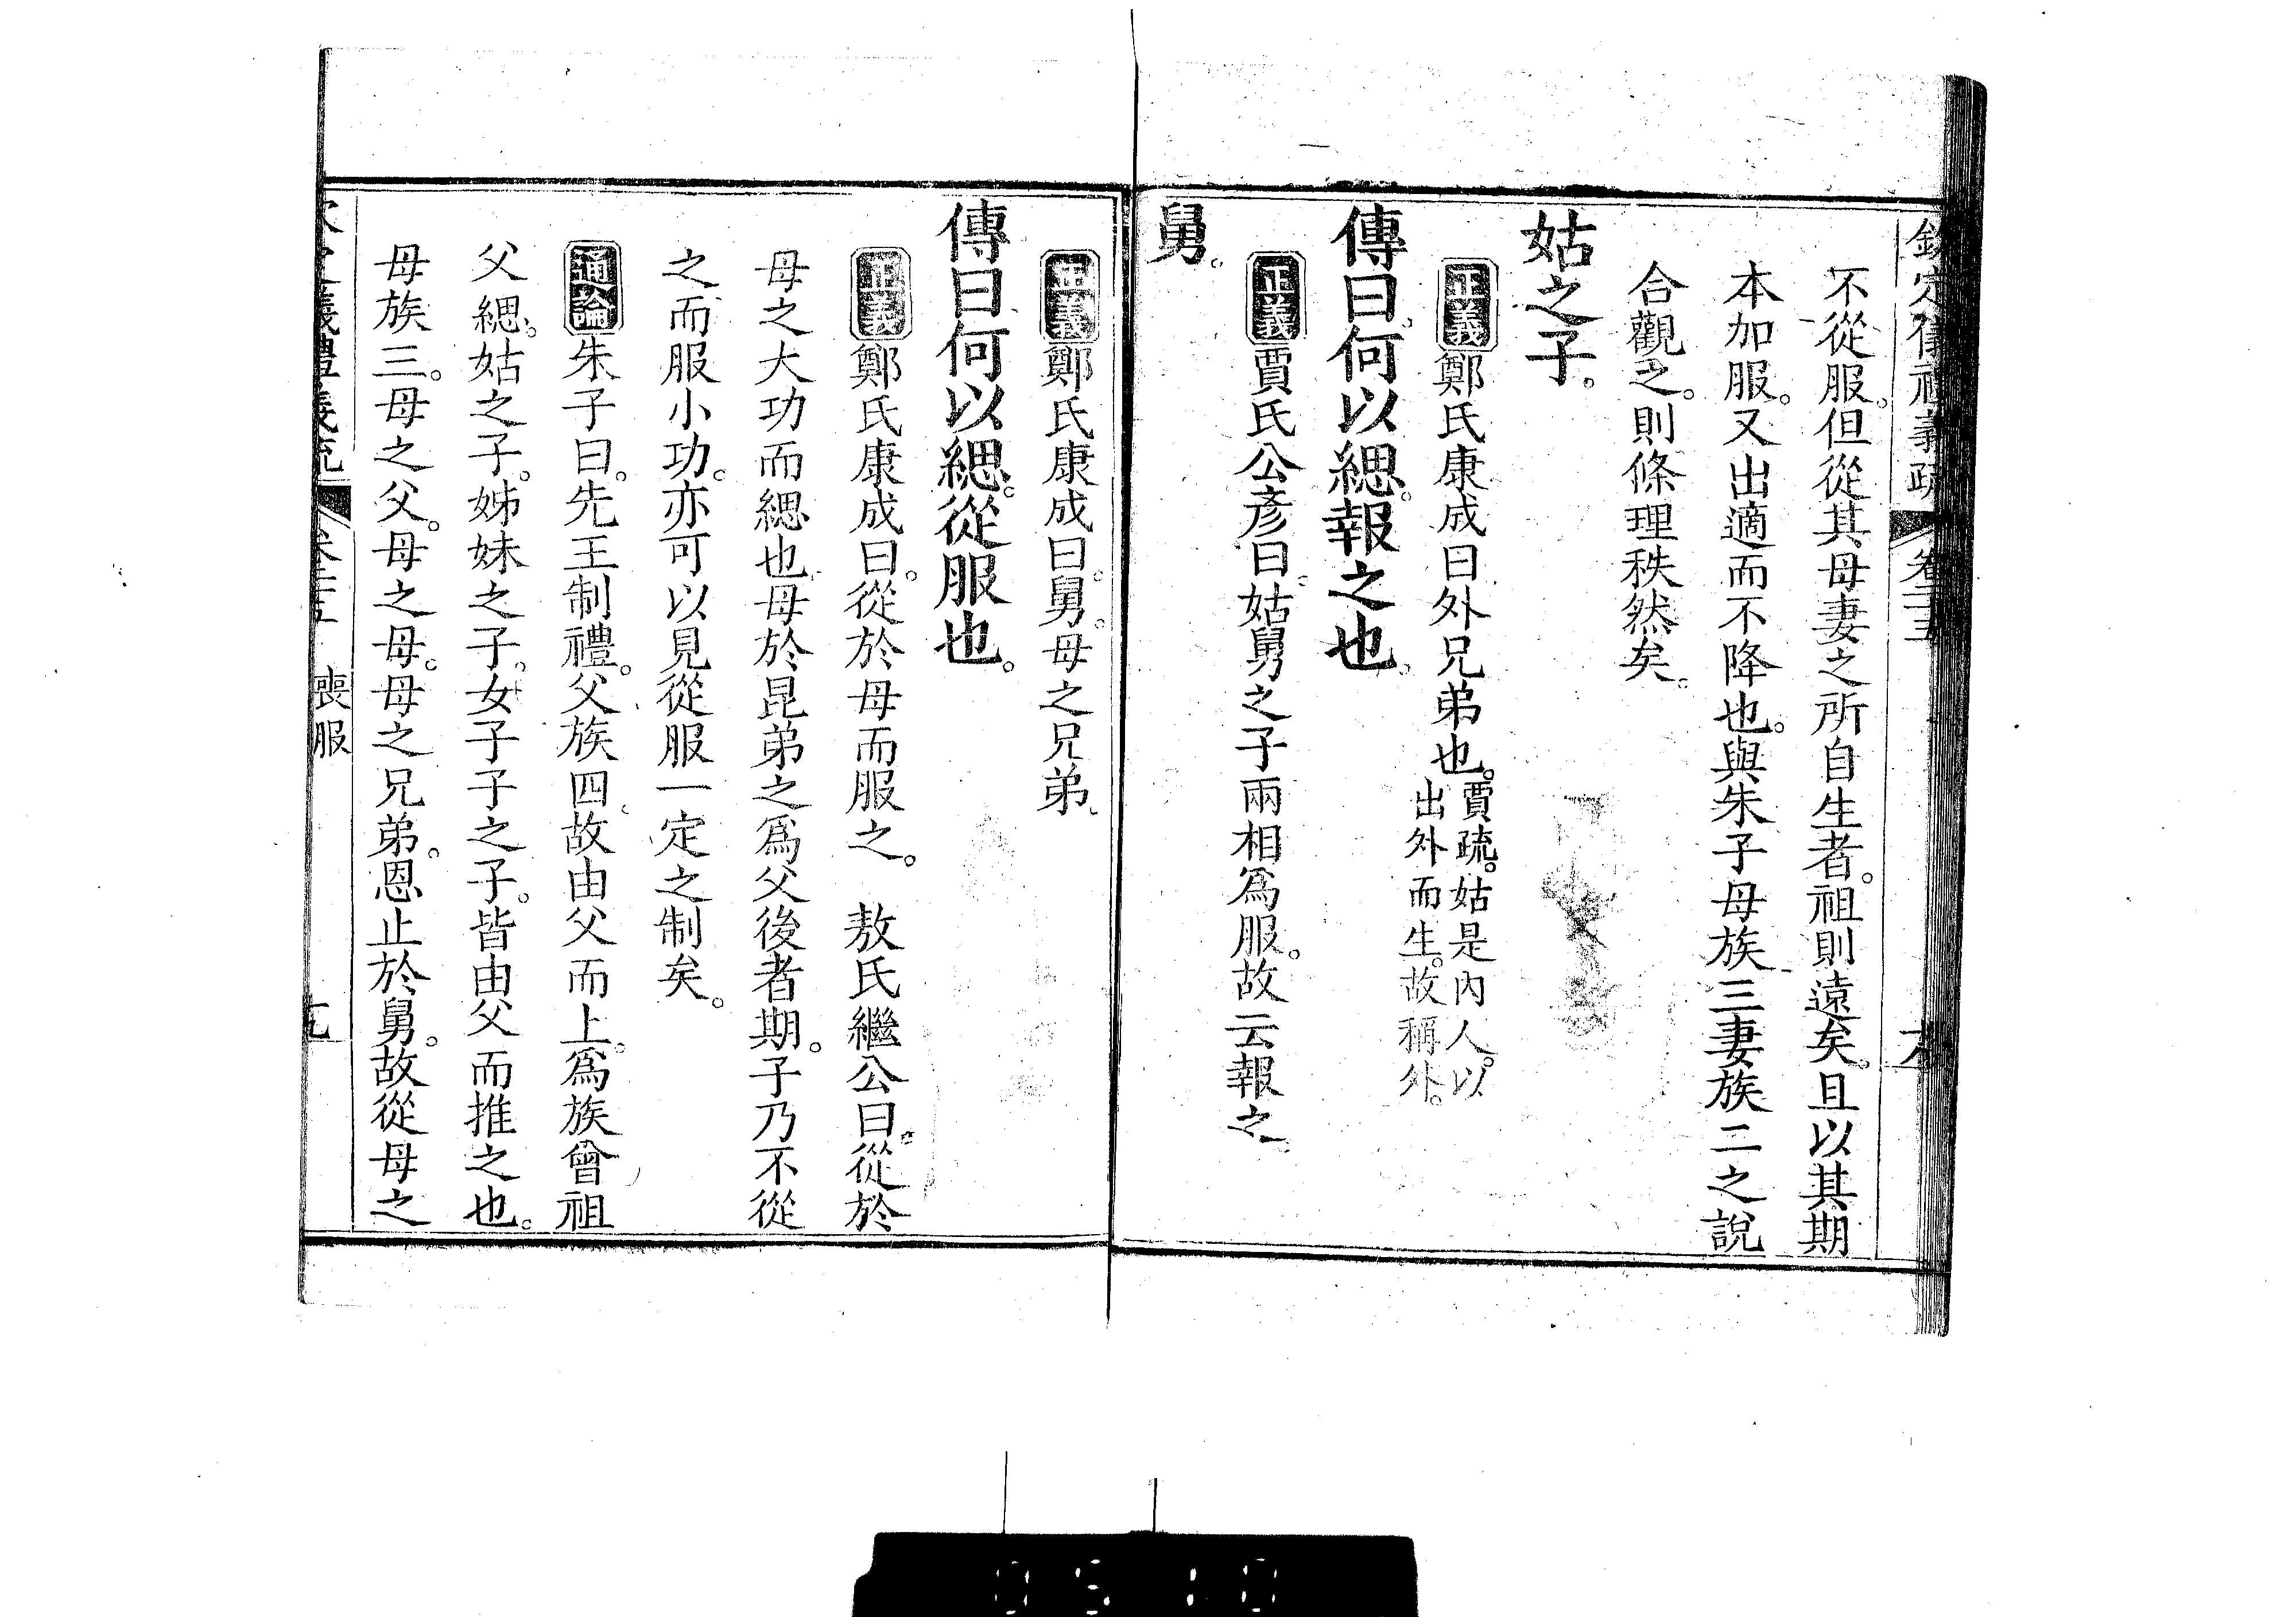 欽定儀禮義疏 卷二十五
不從服。但從其母妻之所自生者。祖則遠矣。且以其期
本加服。又出適而不降也。與朱子母族三妻族二之說
合觀之。則條理秩然矣。
姑之子。
正義鄭氏康成曰外兄弟也。賈疏。姑是內人。以
出外而生。故稱外。
傳曰。何以緦。報之也。
正義賈氏公彥曰。姑舅之子兩相爲服。故云報之。
舅。
正義鄭氏康成曰。舅。母之兄弟。
傳曰何以緦。從服也。
正義鄭氏康成曰。從於母而服之。 敖氏繼公曰。從於
母之大功而緦也。母於昆弟之爲父後者期。子乃不從
之而服小功。亦可以見從服一定之制矣。
通論朱子曰。先王制禮。父族四。故由父而上。爲族曾祖
父緦。姑之子。姊妹之子。女子子之子。皆由父而推之也。
母族三。母之父。母之母。母之兄弟。恩止於舅。故從母之
喪服
0510